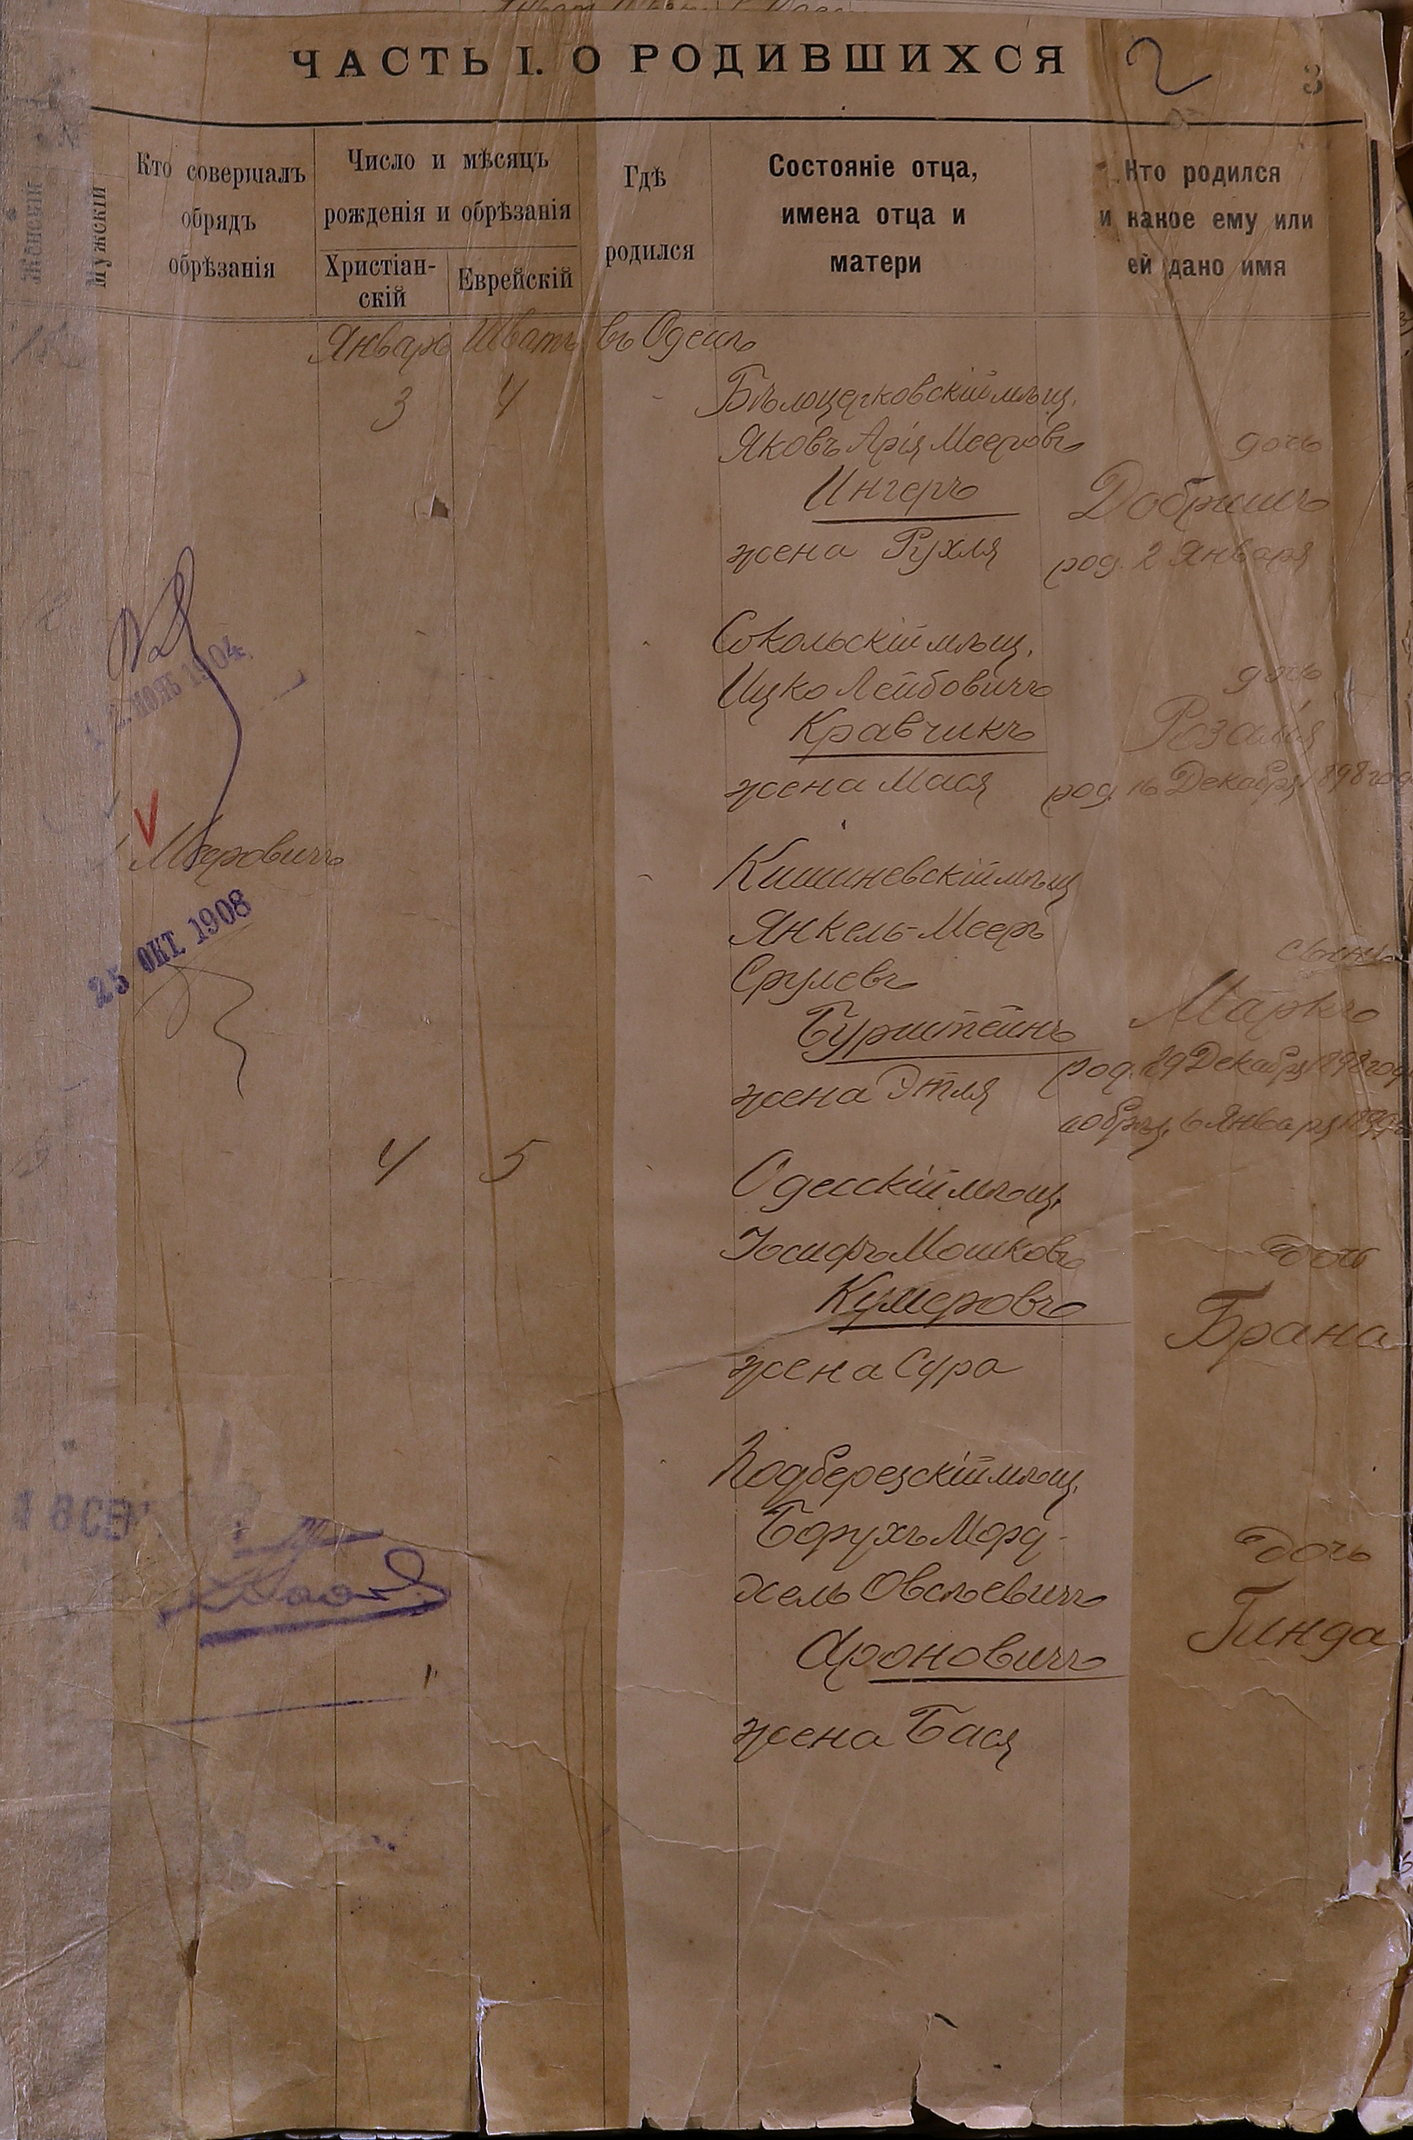 ЧАСТЬ I. О РОДИВШИХСЯ
2
3
Женскій
Мужскій
Кто совершалъ
обрядъ
обрѣзанія
Число и мѣсяцъ
рожденія и обрѣзанія
Христіан-
скій
Еврейскій
Гдѣ
родился
Состояніе отца,
имена отца и
матери
Кто родился
и какое ему или
ей дано имя
Январь Шватъ въ Одессѣ
3 4
Бѣлоцерковскій мѣщ.
Яковъ Арія Мееровъ
Ингеръ
жена Рухля
дочь
Добришъ
род. 2 Января
Сокольскій мѣщ.
Ицко Лейбовичъ
Кравчикъ
жена Мася
дочь
Розалія
род. 16 Декабря 1898 год
НОЯБ 1904
Мееровичъ
25 ОКТ. 1908
Кишиневскій мѣщ
Янкель-Мееръ
Срулевъ
Бурштейнъ
жена Этля
сынъ
Маркъ
род. 29 Декабря 1898 год
и обрѣз. 6 Января 1899
4 5
Одесскій мѣщ.
Іосифъ Мошковъ
Кумеровъ
жена Сура
дочь
Брана
Подберезскій мѣщ.
Борухъ Морд-
хель Овсѣевичъ
Ароновичъ
жена Бася
дочь
Гинда